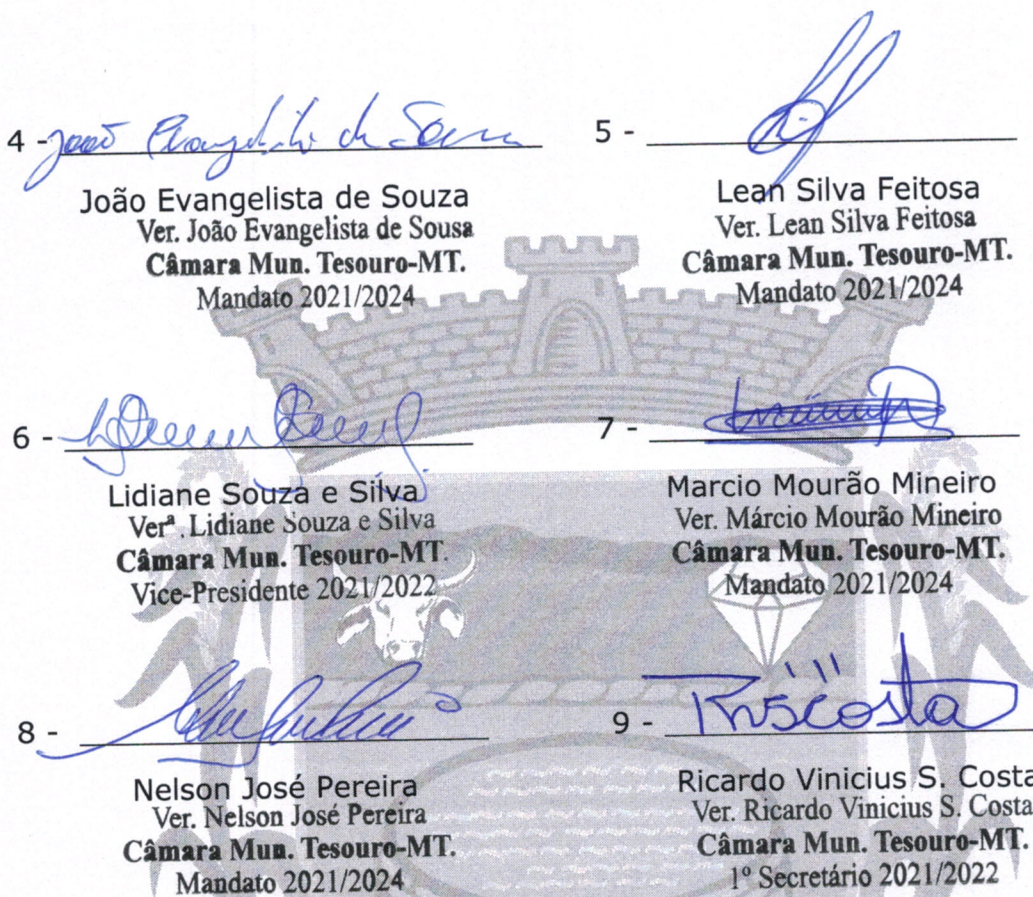 4 - João Evangelista de Souza
João Evangelista de Souza
Ver. João Evangelista de Sousa
Câmara Mun. Tesouro-MT.
Mandato 2021/2024
5 -
Lean Silva Feitosa
Ver. Lean Silva Feitosa
Câmara Mun. Tesouro-MT.
Mandato 2021/2024
6 -
Lidiane Souza e Silva
Verª. Lidiane Souza e Silva
Câmara Mun. Tesouro-MT.
Vice-Presidente 2021/2022
7 -
Marcio Mourão Mineiro
Ver. Márcio Mourão Mineiro
Câmara Mun. Tesouro-MT.
Mandato 2021/2024
8 -
Nelson José Pereira
Ver. Nelson José Pereira
Câmara Mun. Tesouro-MT.
Mandato 2021/2024
9 - RVSCosta
Ricardo Vinicius S. Costa
Ver. Ricardo Vinicius S. Costa
Câmara Mun. Tesouro-MT.
1º Secretário 2021/2022